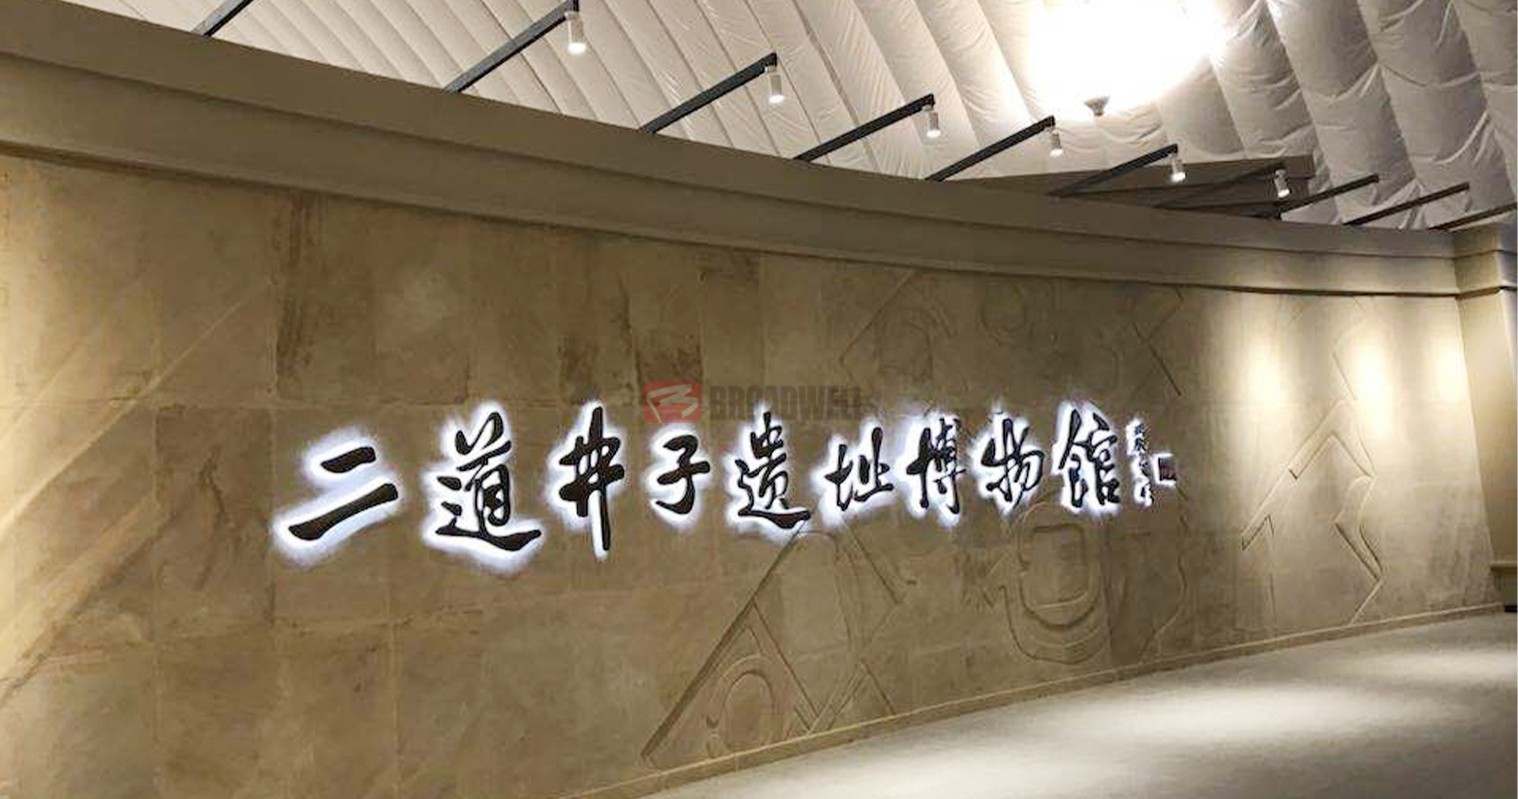 二道井子遗址博物馆
BROADWELL